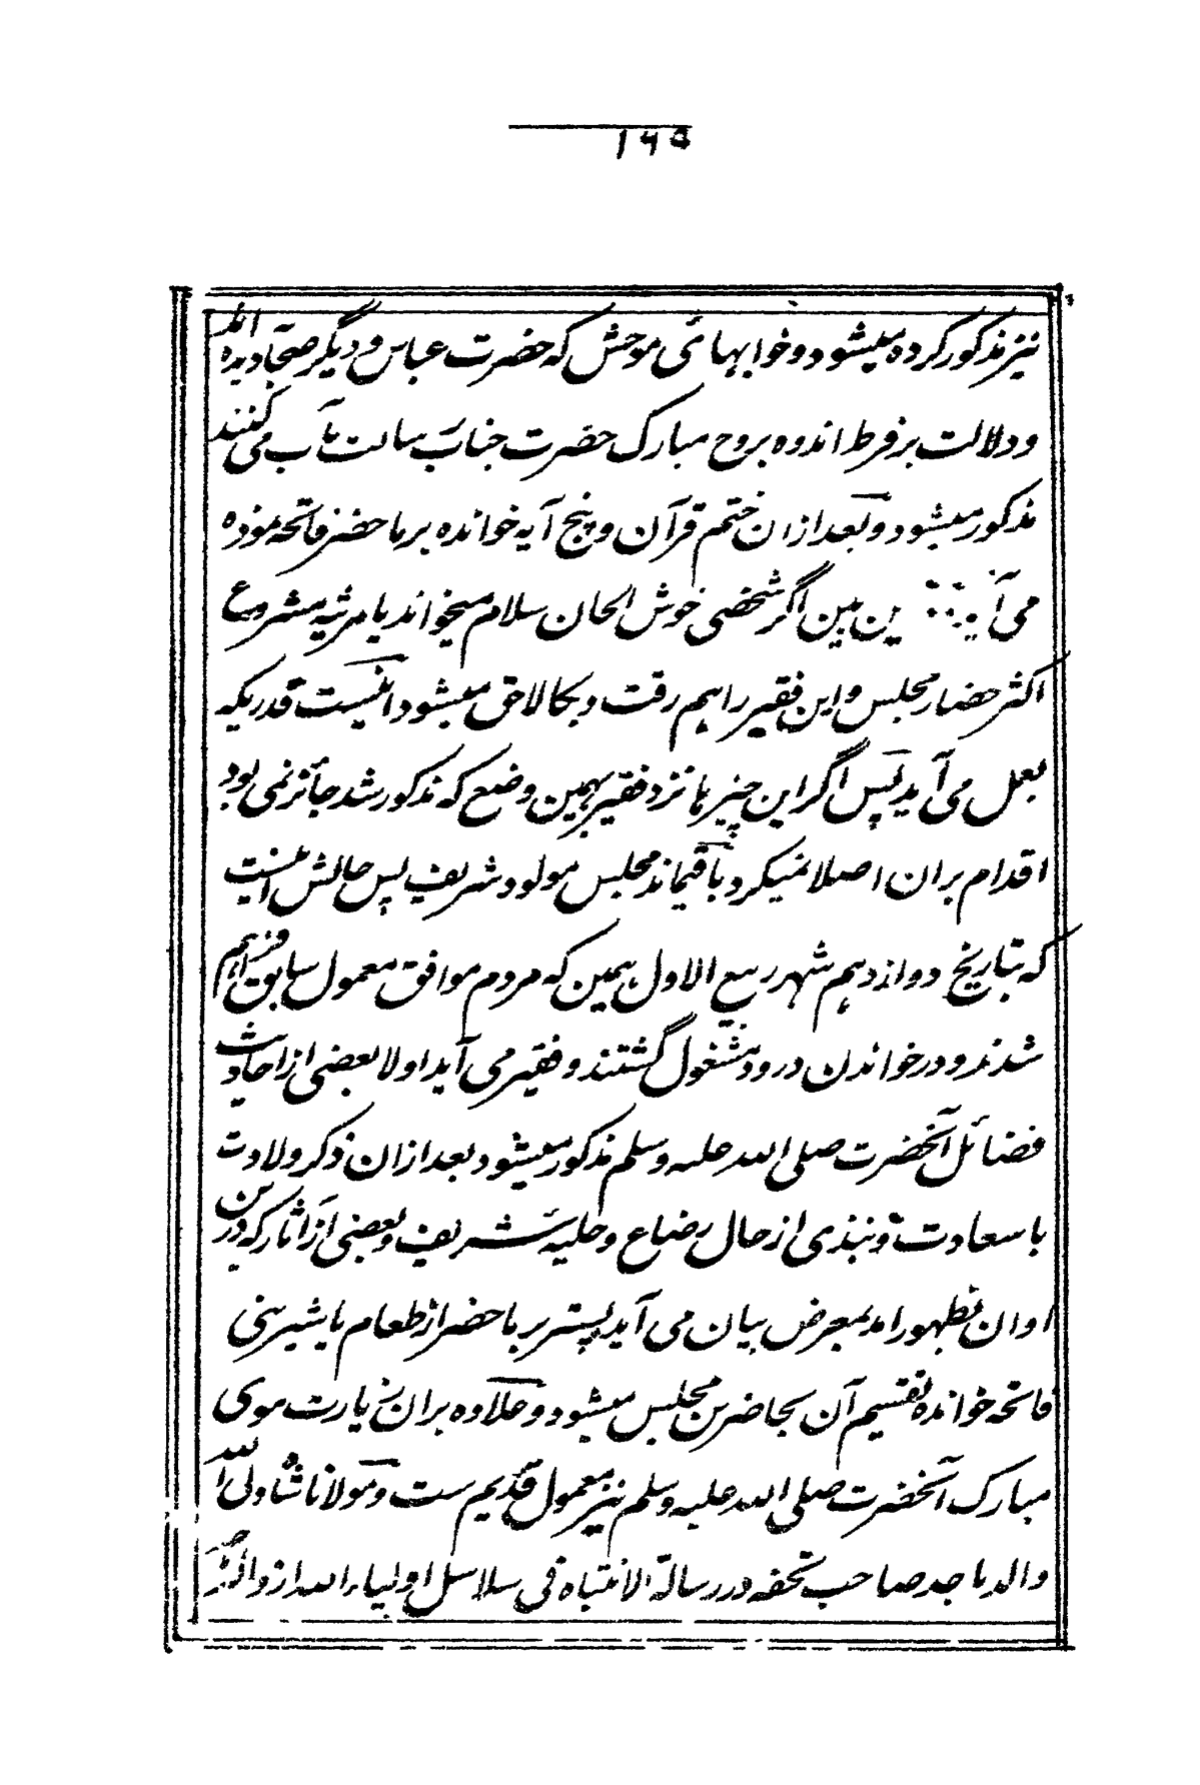 ۱۶۵
نیز مذکور کرده میشود و خوابهائی موحش که حضرت عباس و دیگر صحابه دیده اند
و دلالت بر فرط اندوه بروح مبارک حضرت جناب رسالت مآب می کنند
مذکور میشود و بعد ازان ختم قرآن و پنج آیه خوانده بر ما حضر فاتحه نموده
می آید ین بین اگر شخصی خوش الحان سلام میخواند یا مرثیه مشروع
اکثر حضار مجلس و این فقیر را هم رقت و بکا لاحق میشود اینست قدریکه
بعمل می آید پس اگر این چیزها نزد فقیر بهمین وضع که مذکور شد جائز نمی بود
اقدام بران اصلا نمیکرد باقیماند مجلس مولود شریف پس حالش اینست
که بتاریخ دوازدهم شهر ربیع الاول همین که مردم موافق معمول سابق فراهم
شدند و در خواندن درود مشغول گشتند و فقیر می آید اولا بعضی از احادیث
فضائل آنحضرت صلی الله علیه وسلم مذکور میشود بعد ازان ذکر ولادت
با سعادت و نبذی از حال رضاع و حلیه شریف و بعضی از آثار که درین
اوان بظهور امد بمعرض بیان می آید پستر بر ما حضر از طعام یا شیرینی
فاتحه خوانده تقسیم آن بحاضرین مجلس میشود و علاوه بران زیارت موی
مبارک آنحضرت صلی الله علیه وسلم نیز معمول قدیم ست و مولانا شاه ولی الله
والد ماجد صاحب تحفه در رسالة الانتباه فی سلاسل اولیاء الله از والد